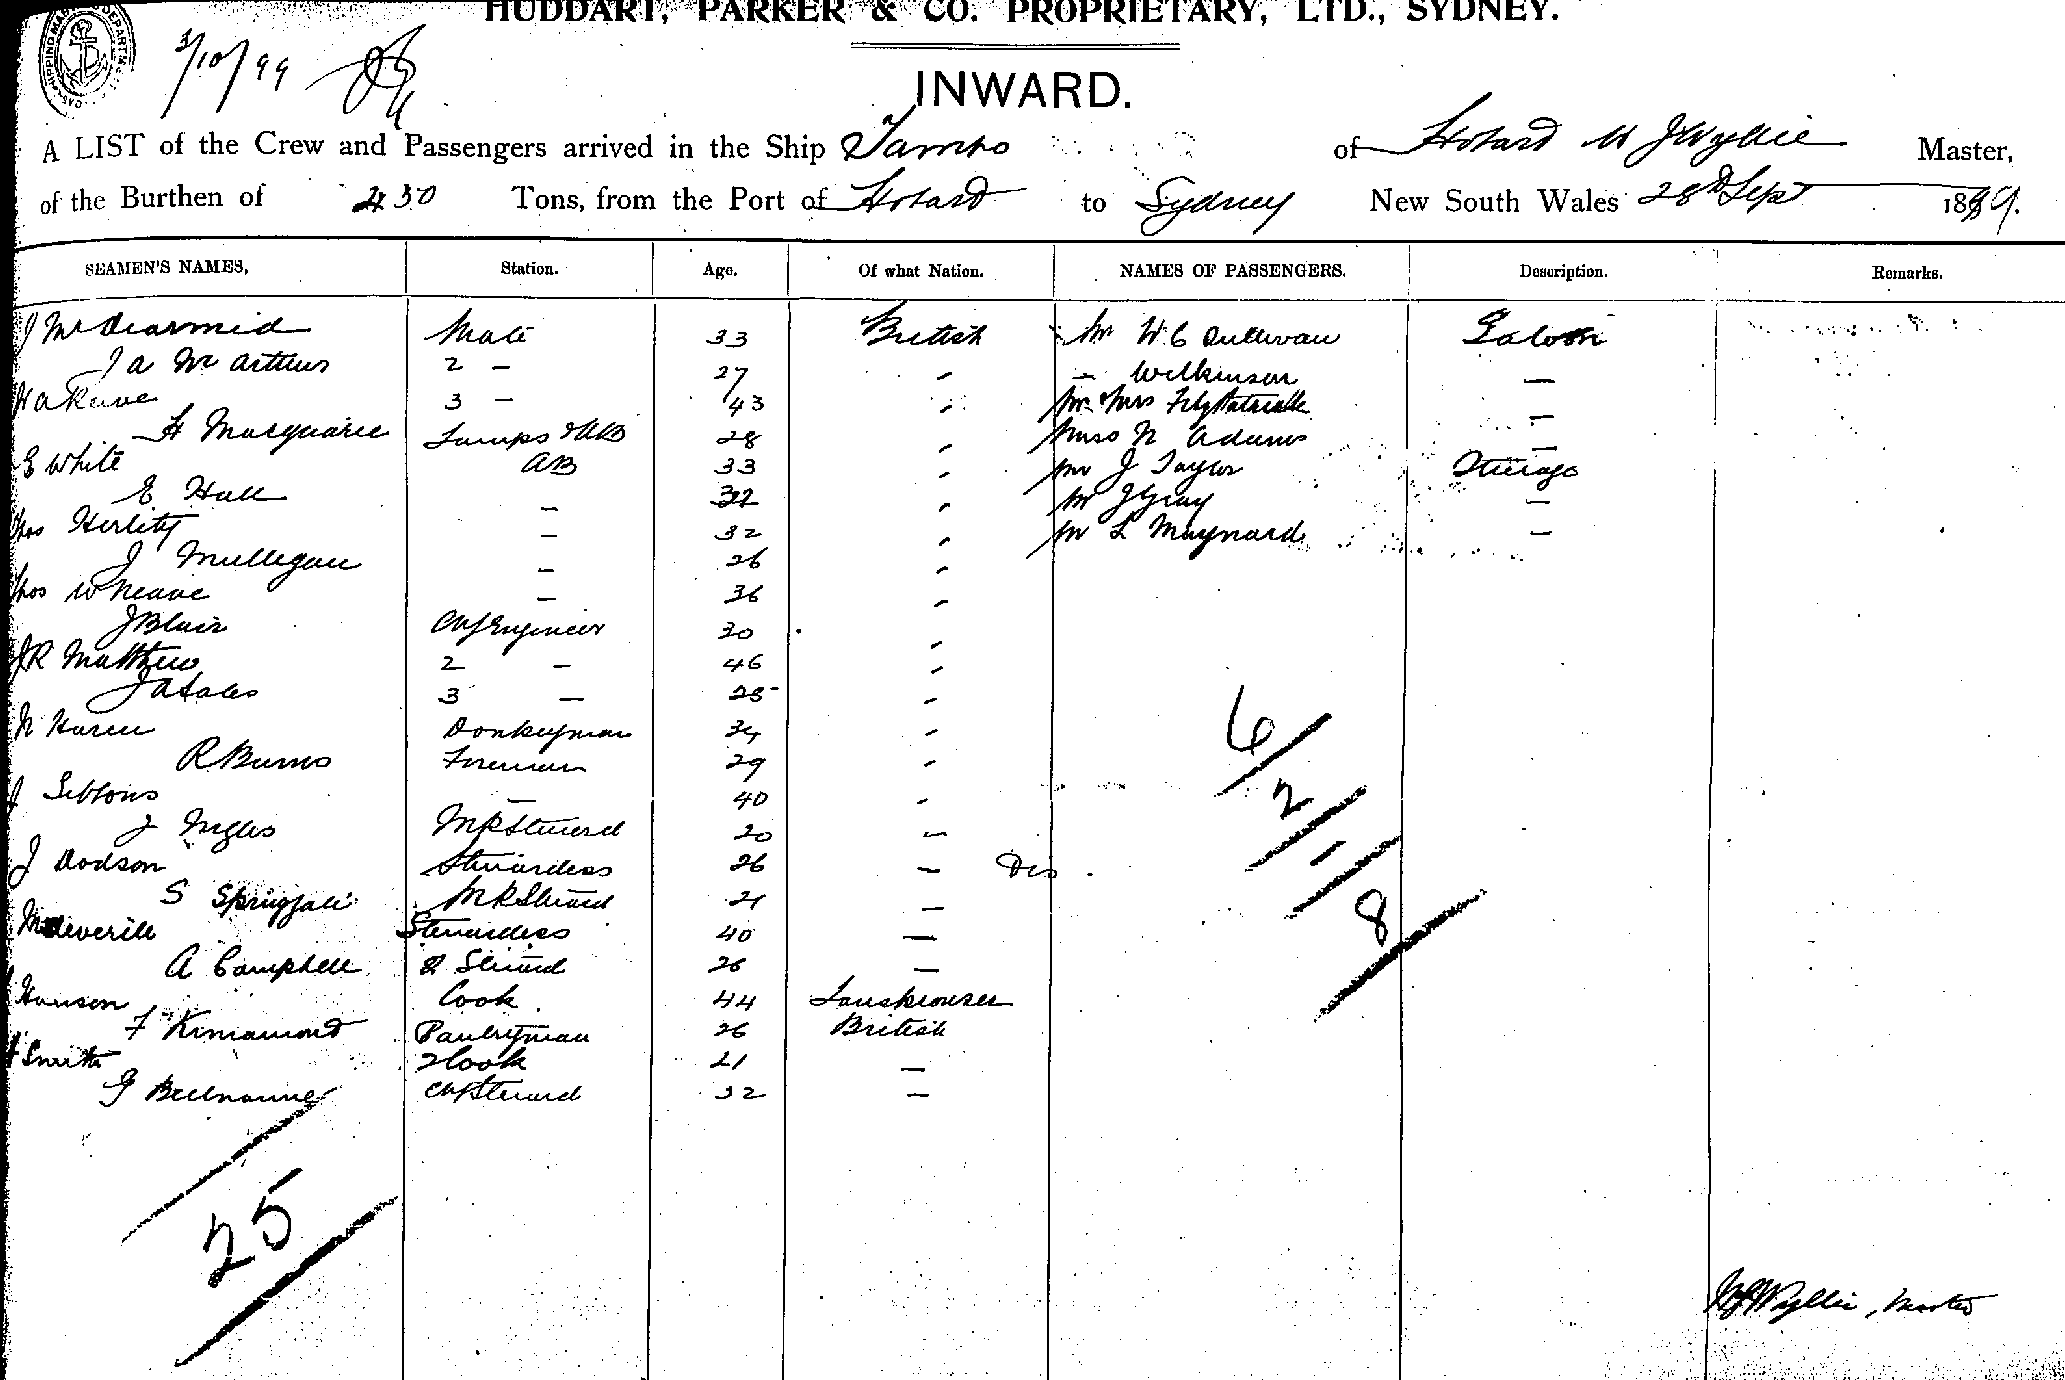 HUDDART, PARKER & CO. PROPRIETARY, LTD., SYDNEY.
3/10/99
INWARD.
A LIST of the Crew and Passengers arrived in the Ship Tambo of Hobart W J Wyllie Master,
of the Burthen of 430 Tons, from the Port of Hobart to Sydney New South Wales 28th Sept 1899.
SEAMEN'S NAMES, Station. Age. Of what Nation. NAMES OF PASSENGERS. Description. Remarks.
J McDiarmid Mate 33 British Mr W C Sullivan Saloon
J A McArthur 2 - 27 " - Wilkinson -
H A 3 - 43 " Mr & Mrs Fitzpatrick -
H Macquarie Lamps & AB 28 " Miss N Adams -
E White AB 33 " Mr J Taylor Steerage
E Hall - 32 " Mr J Gray -
Thos Herlity - 32 " Mr L Maynard -
J Mulligan - 26 "
Thos W Neave - 36 "
J Blair Chf Engineer 30 "
J R Matthew 2 - 46 "
J A Sales 3 - 25 "
N Donkeyman 34 "
R Burns Fireman 29 "
J - 40 "
J Ingles M R Steward 20 -
J Dodson Stewardess 26 - Dis
S M R Steward 21 -
M Deverill Stewardess 40 -
A Campbell 2 Steward 26 -
Hanson Cook 44
F Kinnamond Pantryman 26 British
Smith 2 Cook 21 -
G Chf Steward 32 -
6/2/-/8
25
W J Wyllie, Master